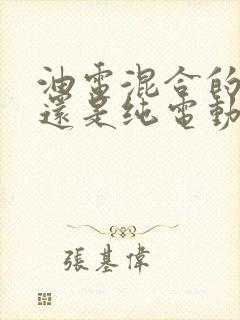 油電混合的
還是純電動
張基偉